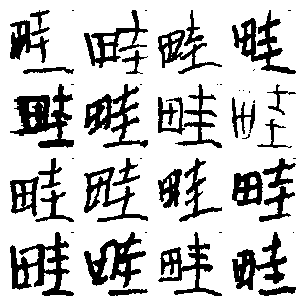 畦畦畦畦
畦畦畦畦
畦畦畦畦
畦畦畦畦